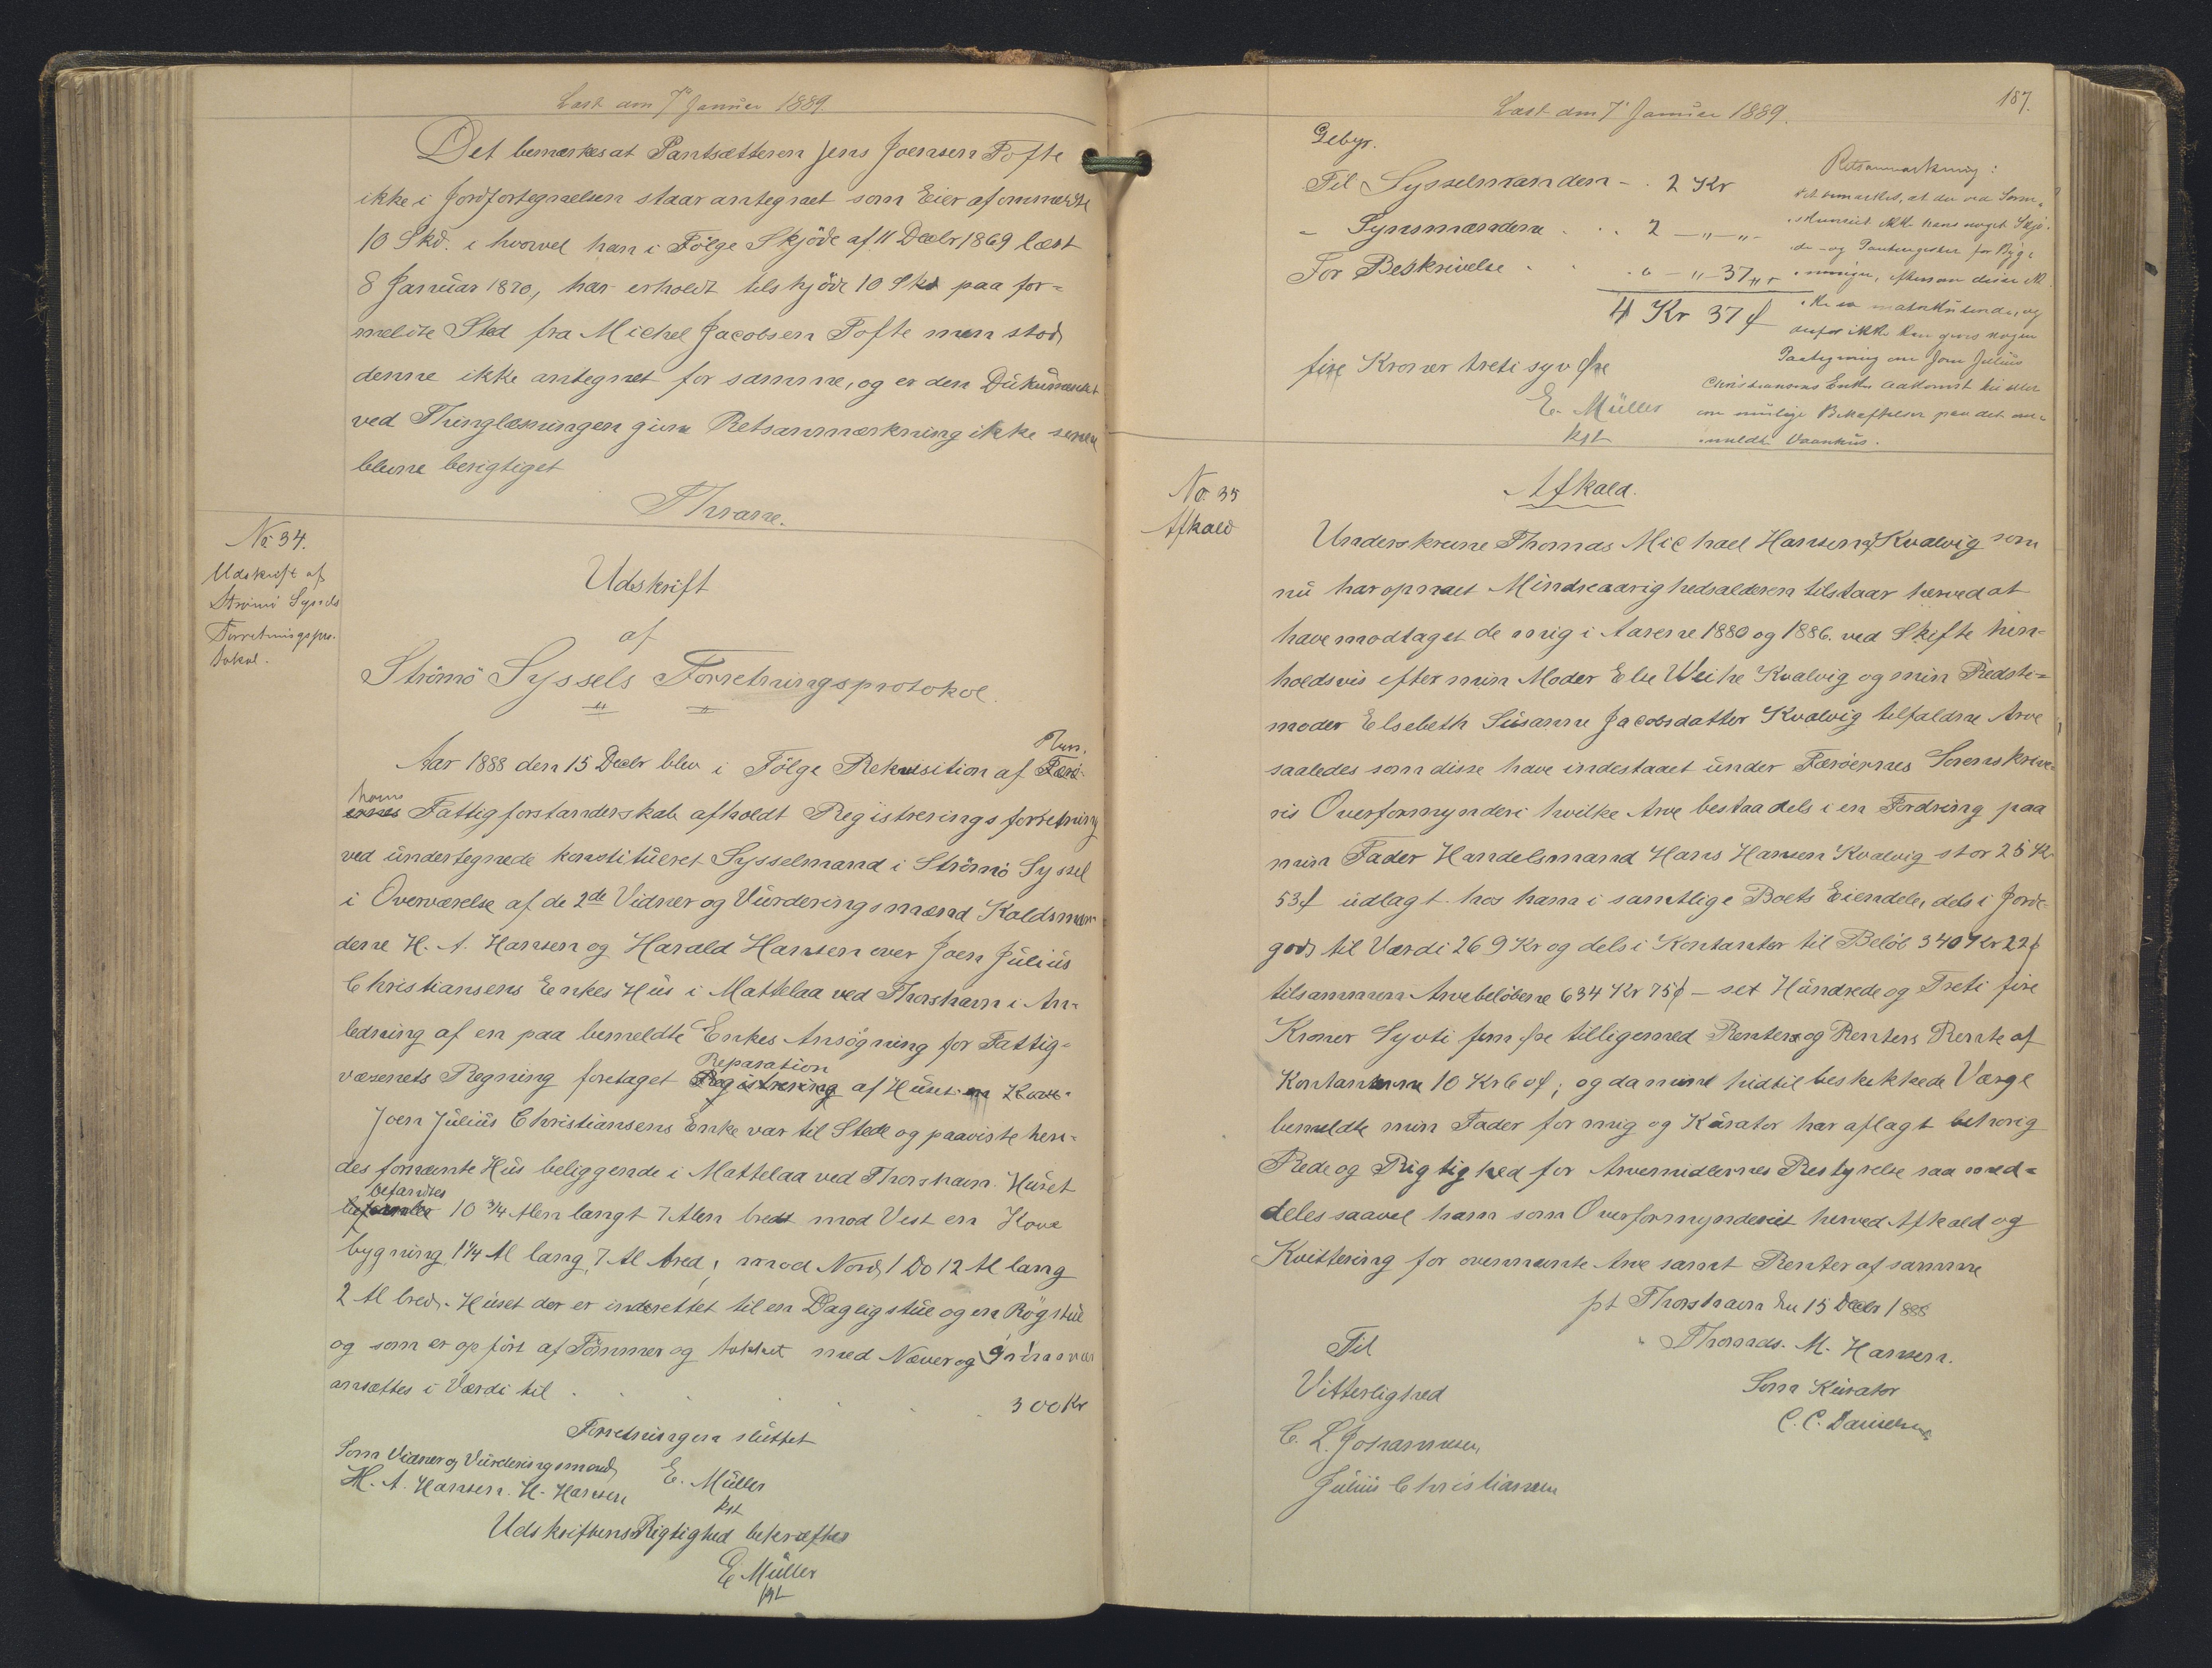 Læst den 7' Januar 1889
Det bemærkes at Pantsætteren Jens Joensen Tofte
ikke i Jordfortegnelsen staar antegnet som Eier af ommeldte
10 Skd. i hvorvel han i Følge Skjöde af 11 Decbr 1869 læst
8 Januar 1870, har erholdt tilskjöde 10 Skd paa for=
meldte Sted fra Michel Jacobsen Tofte men stod
denne ikke antegnet for samme, og er den Dükumentet
ved Thinglæsningen givne Retsanmærkning ikke senere
blevne berigtiget
Thrane.
No 34.
Udskrift af
Strömö Syssels
Forretningspro-
tokol.
Udskrift
af
Strömö Syssels Forretningsprotokol.
Aar 1888 den 15 Decbr blev i Følge Rekvisition af Færö- Thors.
ernes havns Fattigforstanderskab afholdt Registreringsforretning
ved undertegnede konstitueret Sysselmand i Strömö Syssel
i Overværelse af de 2de Vidner og Vurderingsmænd Kaldsmæn
dene H. A. Hansen og Harald Hansen over Joen Julius
Christiansens Enkes Hus i Mattelaa ved Thorshavn i An-
ledning af en paa bemeldte Enkes Ansøgning for Fattig-
væsenets Regning foretaget Registrering Reparation af Huset
Joen Julius Christiansens Enke var til Stede og paaviste hen-
des fornævnte Hus beliggende i Mattelaa ved Thorshavn. Huset
befandtes 10 3/4 Alen langt 7 Alen bredt mod Vest en Kove
bygning 1 1/4 Al lang, 7 Al bred, mod Nord 1 Do 12 Al lang
2 Al bred. Huset der er inderettet til en Dagligstue og en Rögstue
og som er opført af Tømmer og tækket med Næver og Grönsvær
ansættes i Værdi til . . . . . . 300 Kr
Forretningen sluttet
Som Vidner og Vurderingsmænd E. Müller
H. A. Hansen. H. Hansen kst
Udskriftens Rigtighed bekræftes
E. Müller
kst
Læst den 7' Januar 1889.
187.
Gebyr.
Til Sysselmanden - . 2 Kr
- Synsmændene . . . 2 - " - " -
For Beskrivelse . . . " - " - 37 " -
4 Kr 37 ø
fire Kroner treti syv Øre
E. Müller
kst
Retsanmærkning:
det bemærkes, at der ved Soren-
skriveriet ikke haves noget Skjö-
de- og Pantregister for Byg-
ninger, eftersom disse ik-
ke er matrikulerede, og
derfor ikke kan gives nogen
Paategning om Joen Julius
Christiansens Enkes Adkomst til eller
om mulige Behæftelser paa det om-
meldte Vaanhus.
No 35
Afkald
Afkald.
Underskrevne Thomas Michael Hansen af Kvalvig som
nu har opnaaet Mindreaarighedsalderen tilstaar herved at
have modtaget de mig i Aarene 1880 og 1886. ved Skifte hen-
holdsvis efter min Moder Else Weihe Kvalvig og min Bedste=
moder Elsebeth Susanne Jacobsdatter Kvalvig tilfaldne Arve
saaledes som disse have indestaaet under Færöernes Sorenskrive-
ris Overformynderi hvilke Arve bestaa dels i en Fordring paa
min Fader Handelsmand Hans Hansen Kvalvig stor 25 Kr
53 ø udlagt hos ham i samtlige Boets Eiendele, dels i Jorde-
gods til Værdi 269 Kr og dels i Kontanter til Beløb 340 Kr 22 ø
tilsammen Arvebeløbene 634 Kr 75 ø — sex Hundrede og Treti fire
Kroner Syvti fem Øre tilligemed Renter og Renters Rente af
Kontanterne 10 Kr 60 ø; og da min hidtil beskikkede Værge
bemeldte min Fader for mig og Kurator har aflagt behørig
Rede og Rigtighed for Arvemidlernes Bestyrelse saa med=
deles saavel ham som Overformynderiet herved Afkald og
Kvittering for ovennævnte Arve samt Renter af samme
pt Thorshavn den 15 Decbr 1888
Thomas. M. Hansen.
Til
Vitterlighed
Som Kurator
C. C. Danielsen
C. L. Johannesen
Julius Christiansen